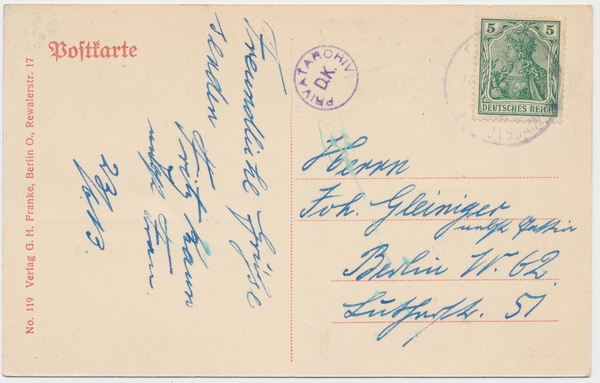 Postkarte
Freundliche Grüße
senden
Fritz Braun
nebst Frau.
23/
IV. 13.
No. 119 Verlag G. H. Franke, Berlin O., Rewalerstr. 17
PRIVATARCHIV
D.K.
5 5
DEUTSCHES REICH
Herrn
Joh. Gleiniger
nebst Gattin
Berlin W. 62
Lutherstr. 51